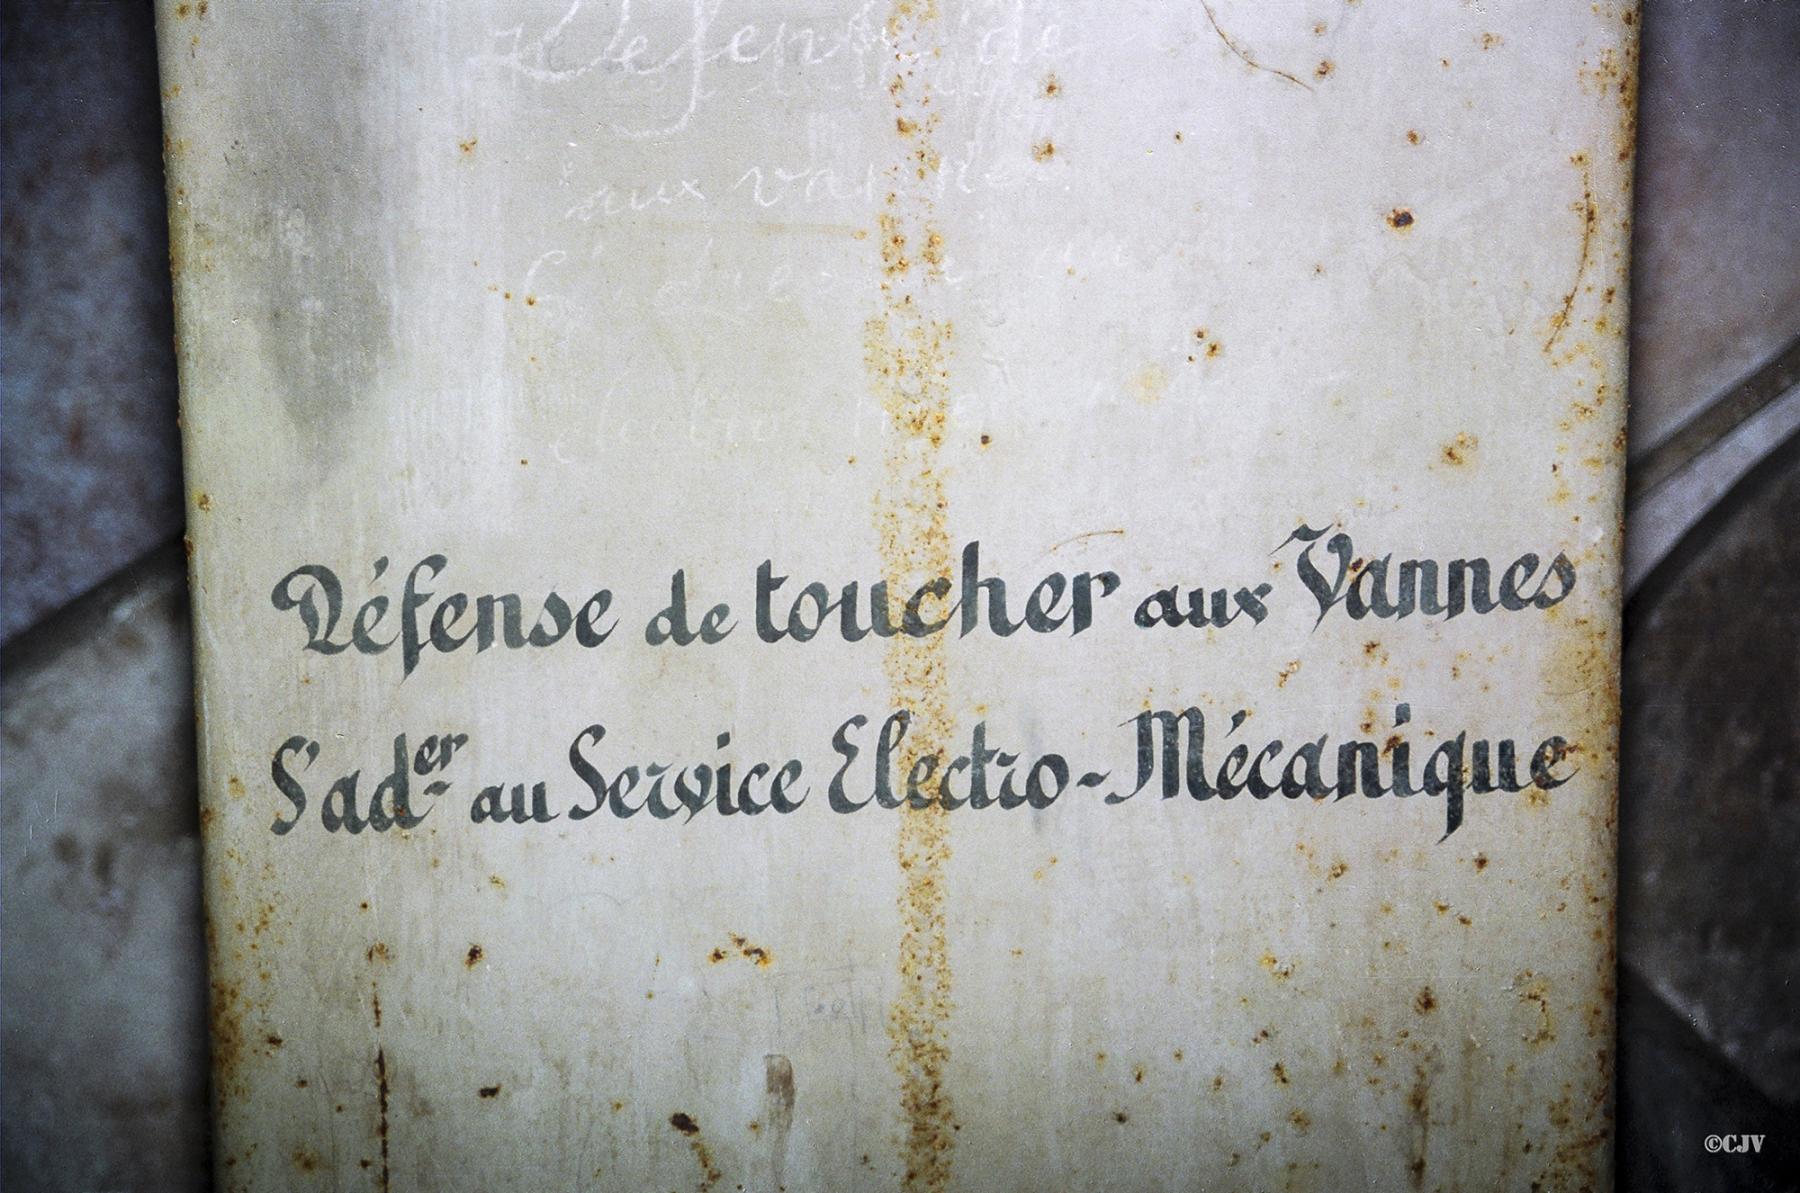 Défense de
aux vannes
Défense de toucher aux Vannes
S'ader au Service Electro-Mécanique
©CJV